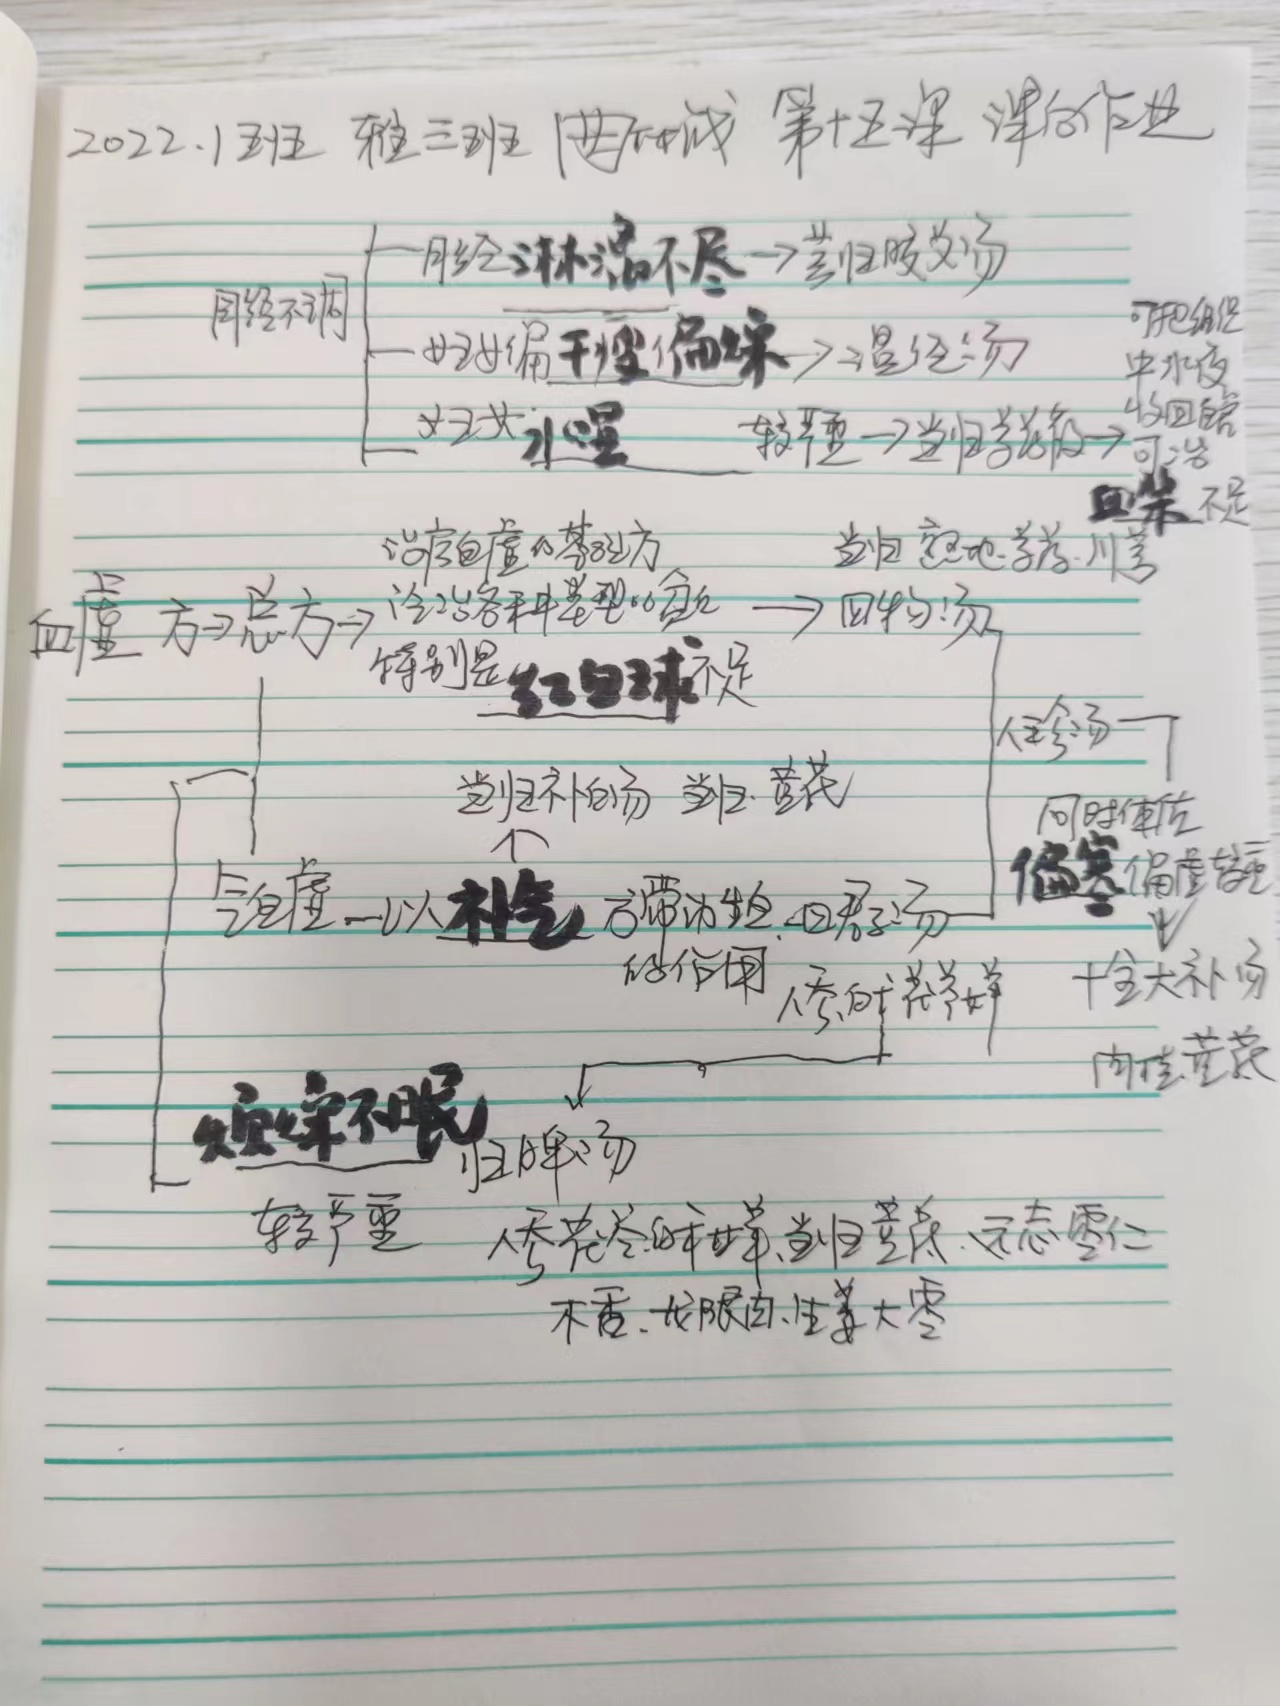 2022.1班 雅三班 第十五课 课后作业
月经淋漓不尽→芎归胶艾汤
月经不调
妇女偏干瘦偏燥→温经汤
可把组织
中水液
收回
可治
血柴不足
妇女水湿 较严重→当归芍药散→
治疗血虚的基础方
当归 熟地 芍药 川芎
血虚 方→总方→
治各种类型的血虚→四物汤
特别是红白球不足
八珍汤
当归补血汤 当归 黄芪
同时体质
偏寒偏虚较重
气血虚一以补气 为 四君子汤
的作用
人参、白术 茯苓 甘草
十全大补汤
肉桂 黄芪
烦燥不眠
归脾汤
较严重
人参 茯苓、白术 甘草、当归 黄芪、远志 枣仁
木香、龙眼肉、生姜 大枣